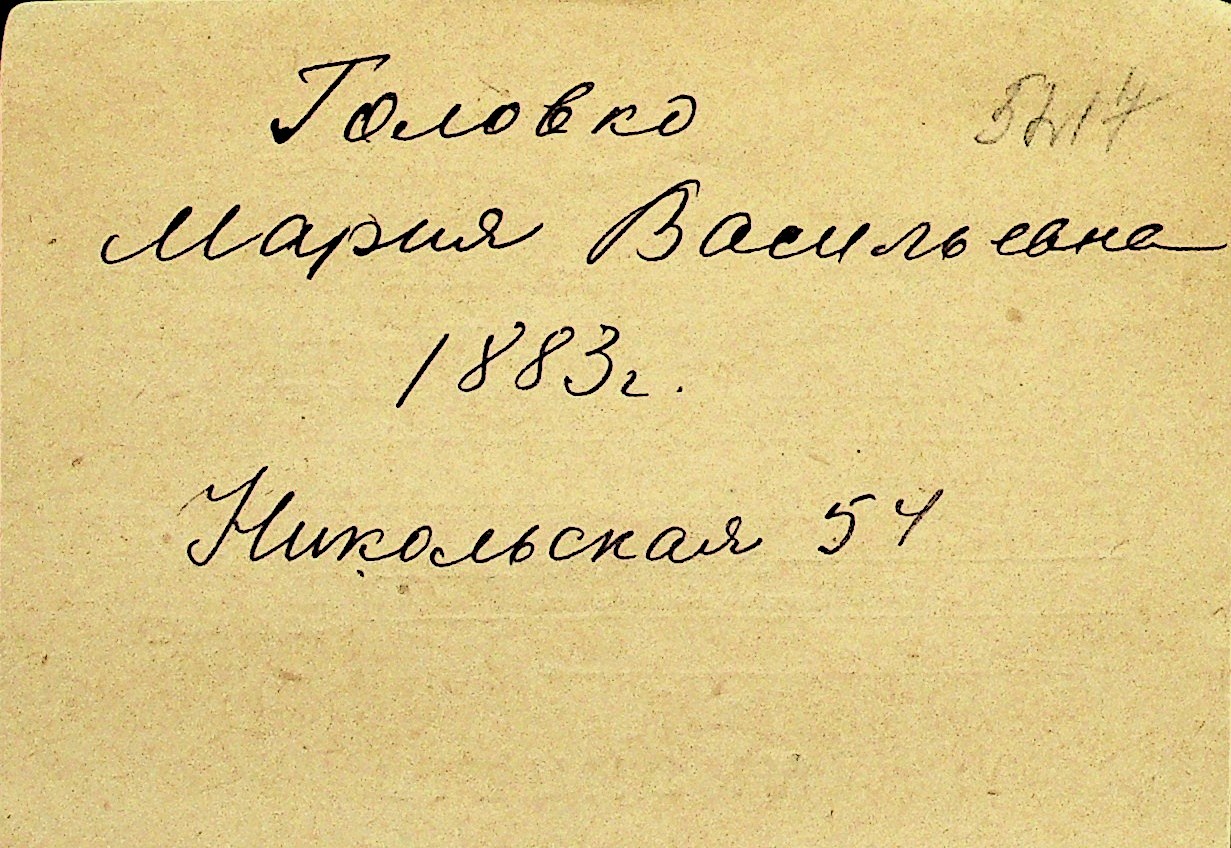 Головко
Мария Васильевна
1883г.
Никольская 54